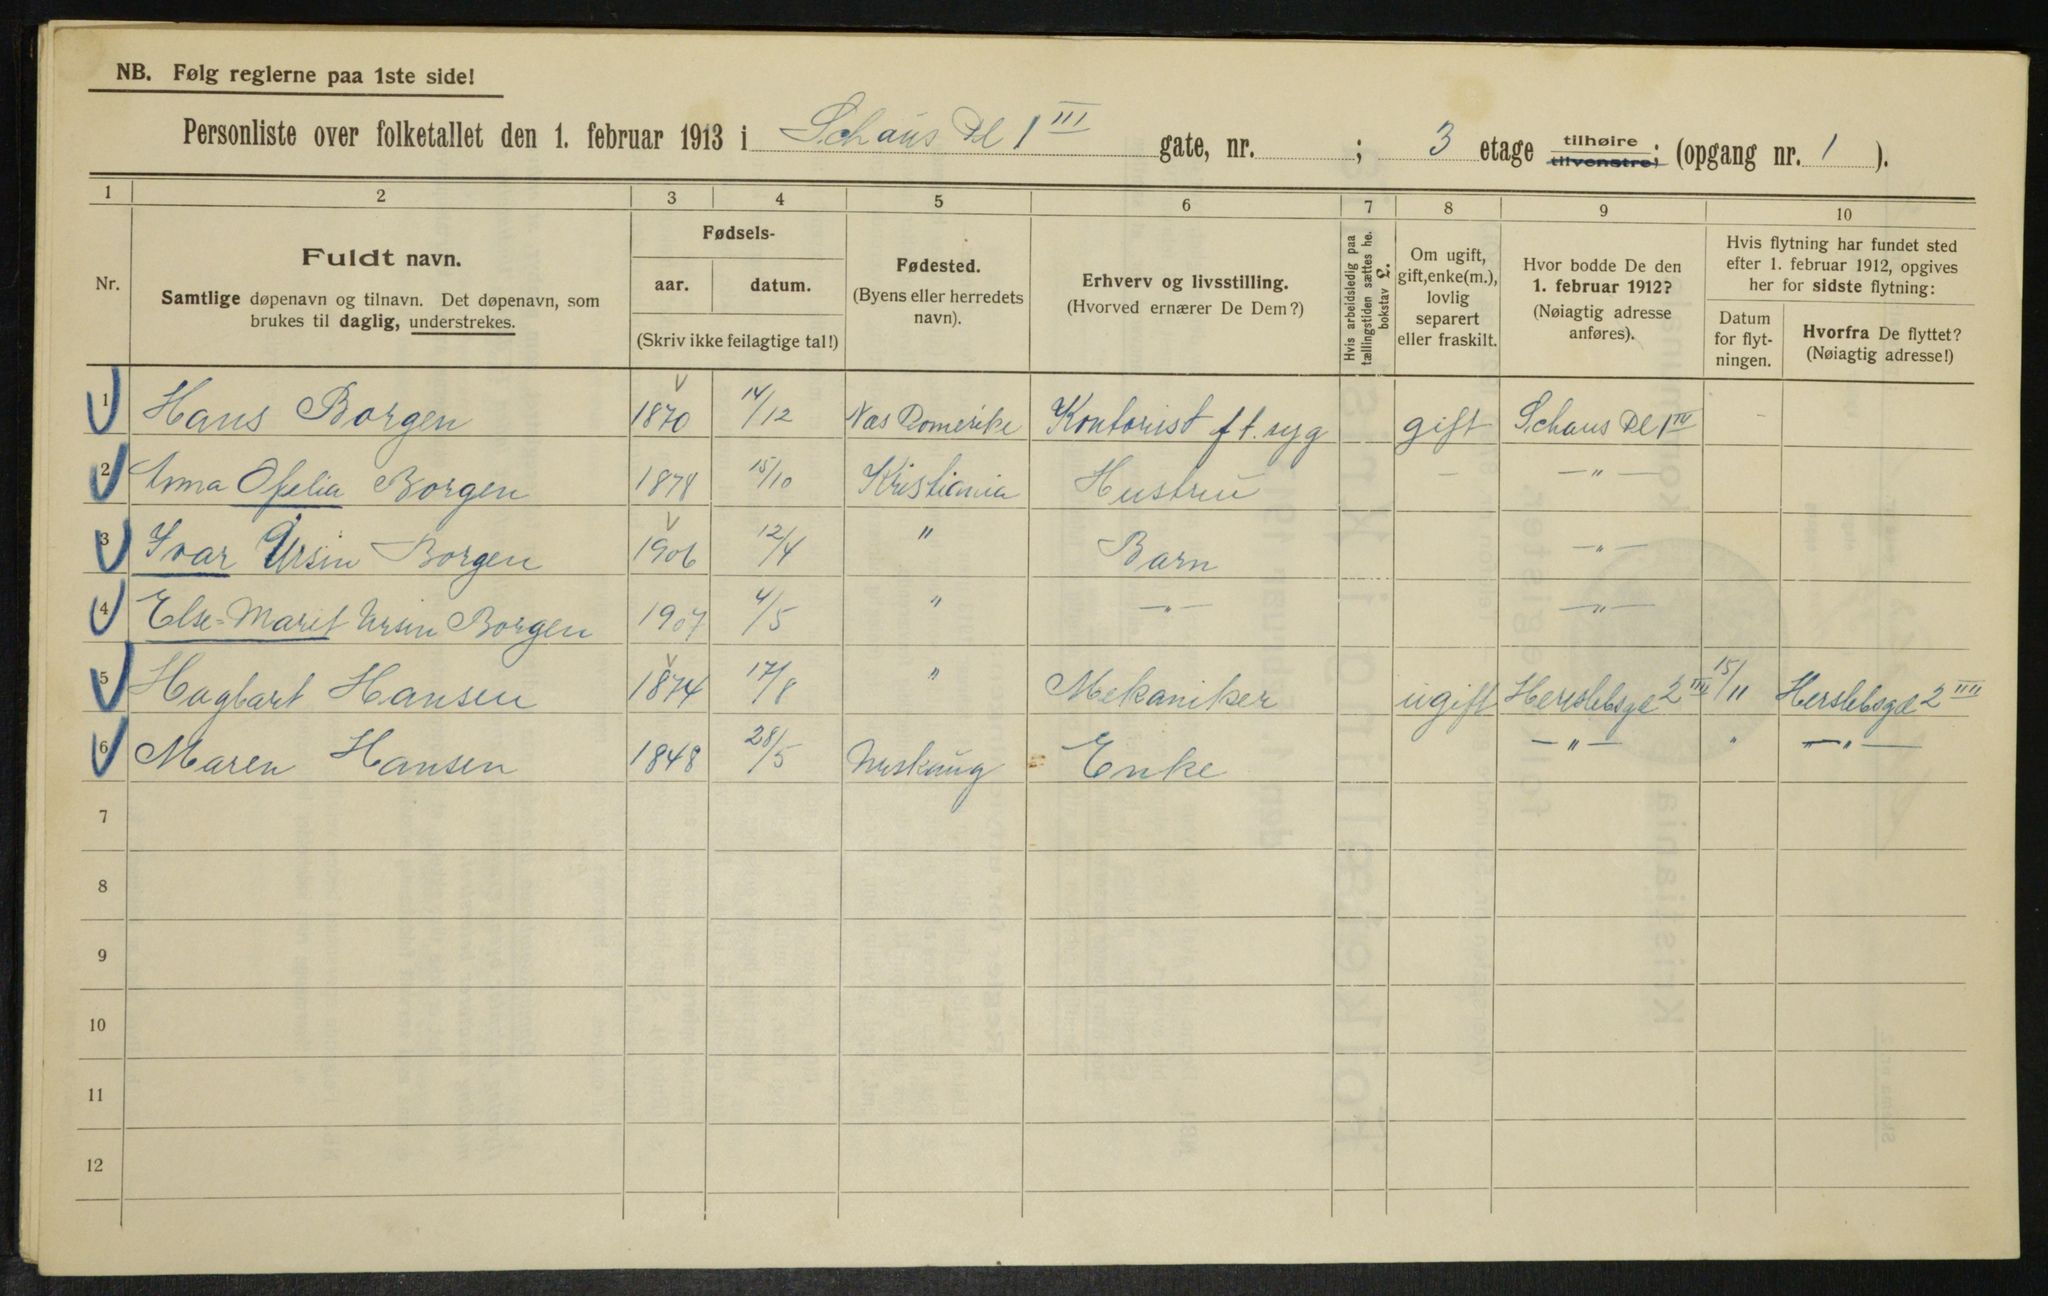 NB. Følg reglerne paa 1ste side!
Personliste over folketallet den 1. februar 1913 i Schaus Pl 1 III gate, nr. ; 3 etage tilhøire tilvenstre; (opgang nr. 1 ).
1 2 3 4 5 6 7 8 9 10
Nr.
Fuldt navn.
Samtlige døpenavn og tilnavn. Det døpenavn, som
brukes til daglig, understrekes.
Fødsels-
aar. datum.
(Skriv ikke feilagtige tal!)
Fødested.
(Byens eller herredets
navn).
Erhverv og livsstilling.
(Hvorved ernærer De Dem?)
Hvis arbeidsledig paa
tællingstiden sættes he.
bokstav L.
Om ugift,
gift, enke(m.),
lovlig
separert
eller fraskilt.
Hvor bodde De den
1. februar 1912?
(Nøiagtig adresse
anføres).
Hvis flytning har fundet sted
efter 1. februar 1912, opgives
her for sidste flytning:
Datum
for flyt-
ningen.
Hvorfra De flyttet?
(Nøiagtig adresse!)
1 Hans Borgen 1870 14/12 Nes Romerike Kontorist f t. syg gift Schaus Pl 1 III -
2 Anna Ofelia Borgen 1878 15/10 Kristiania Hustru - — " —
3 Ivar Ursin Borgen 1906 12/4 " Barn — " —
4 Else-Maret Ursin Borgen 1907 4/5 " — " — — " —
5 Hagbart Hansen 1874 17/8 " Mekaniker ugift Herslebsgd 2 IIII 15/11 Herslebsgd 2 IIII
6 Maren Hansen 1848 28/5 Urskoug Enke — " — " — " —
7
8
9
10
11
12